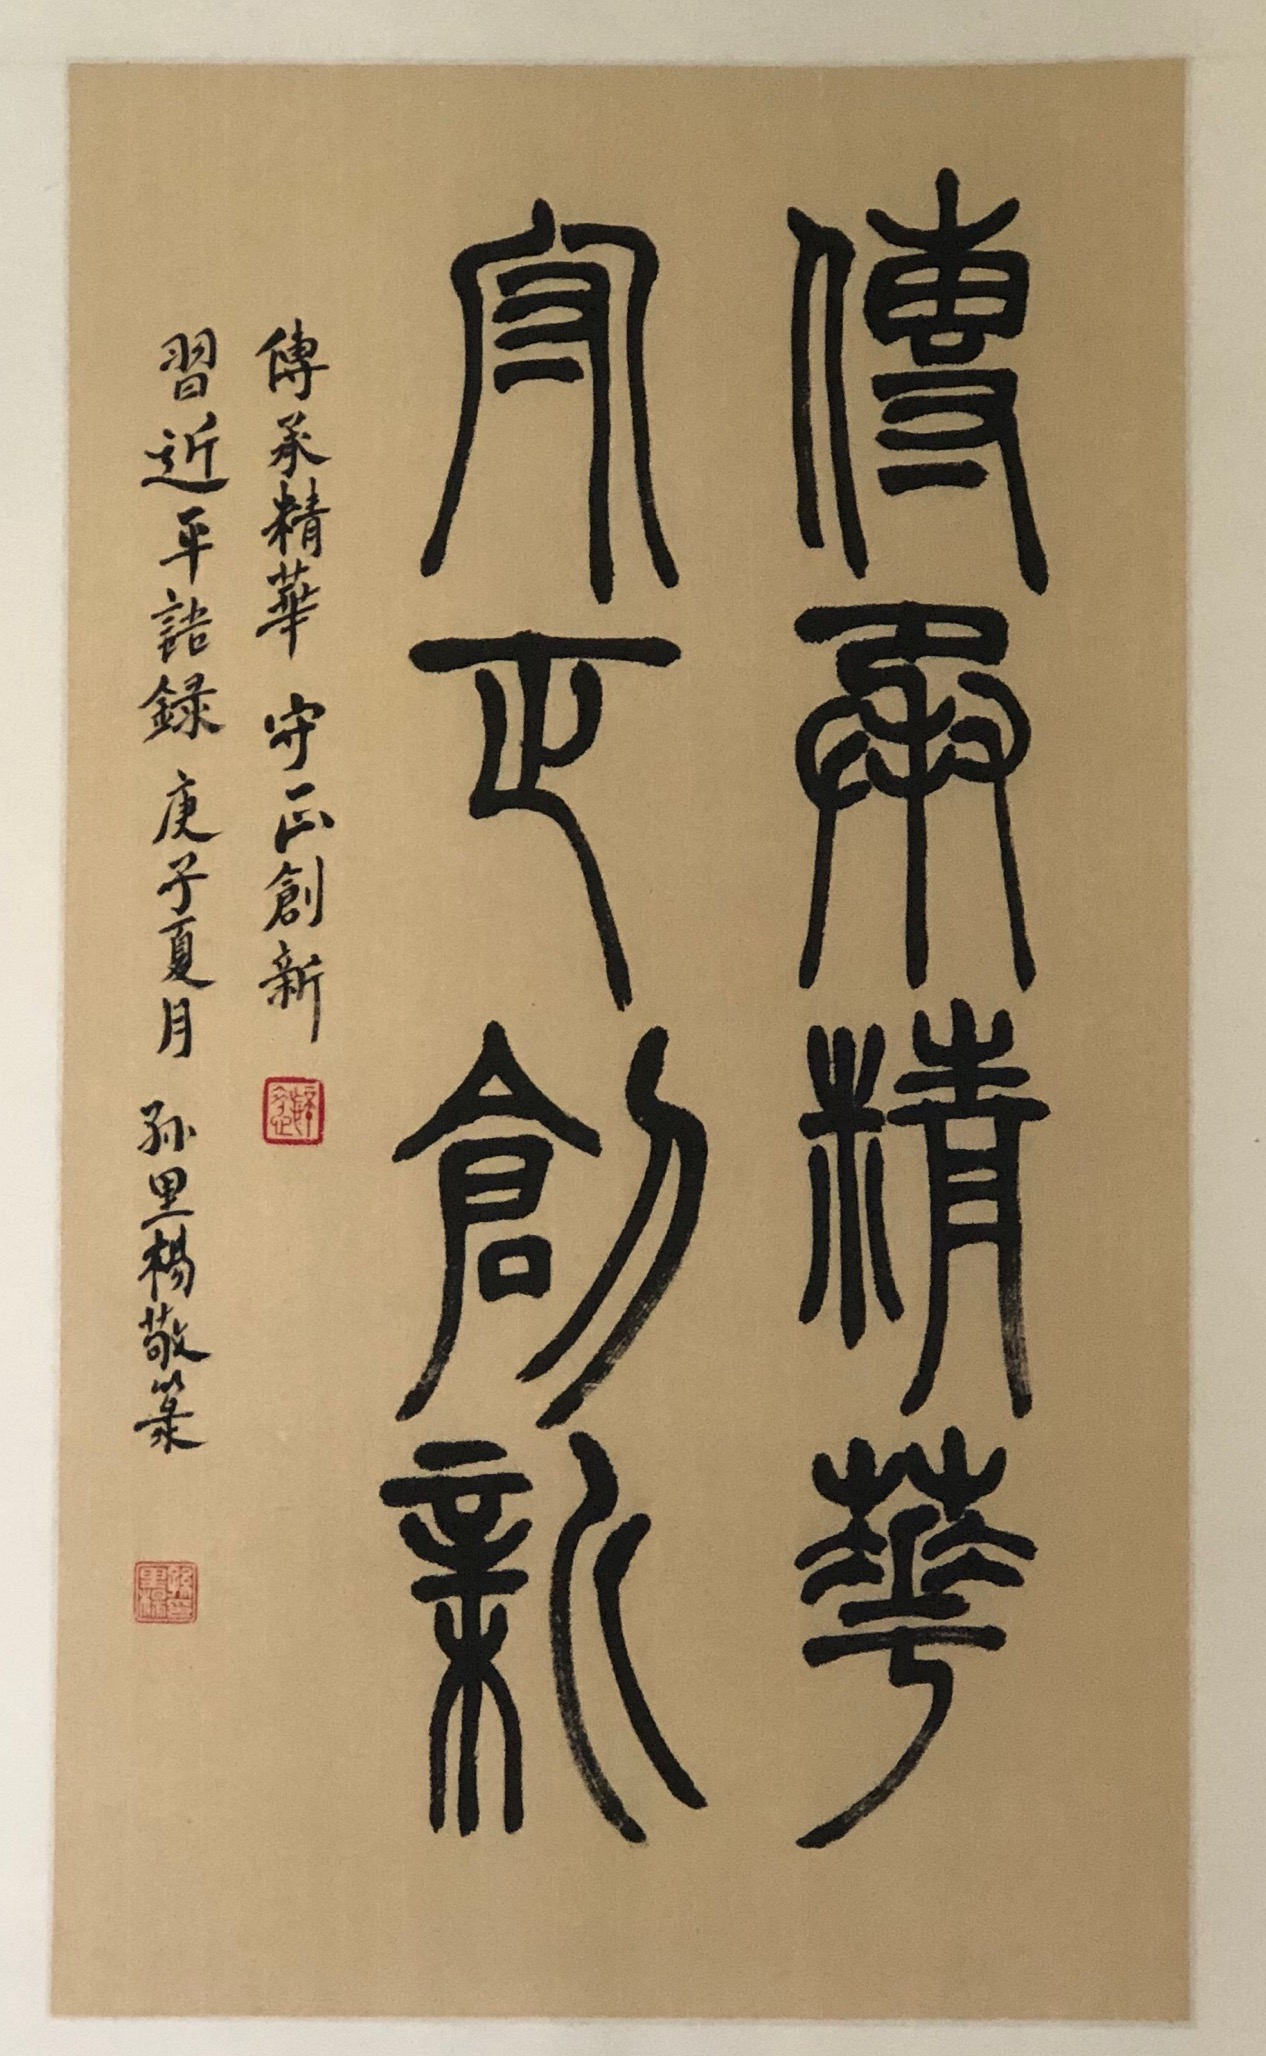 傳承精華
守正創新
傳承精華 守正創新
習近平語錄 庚子夏月 孫里楊敬篆